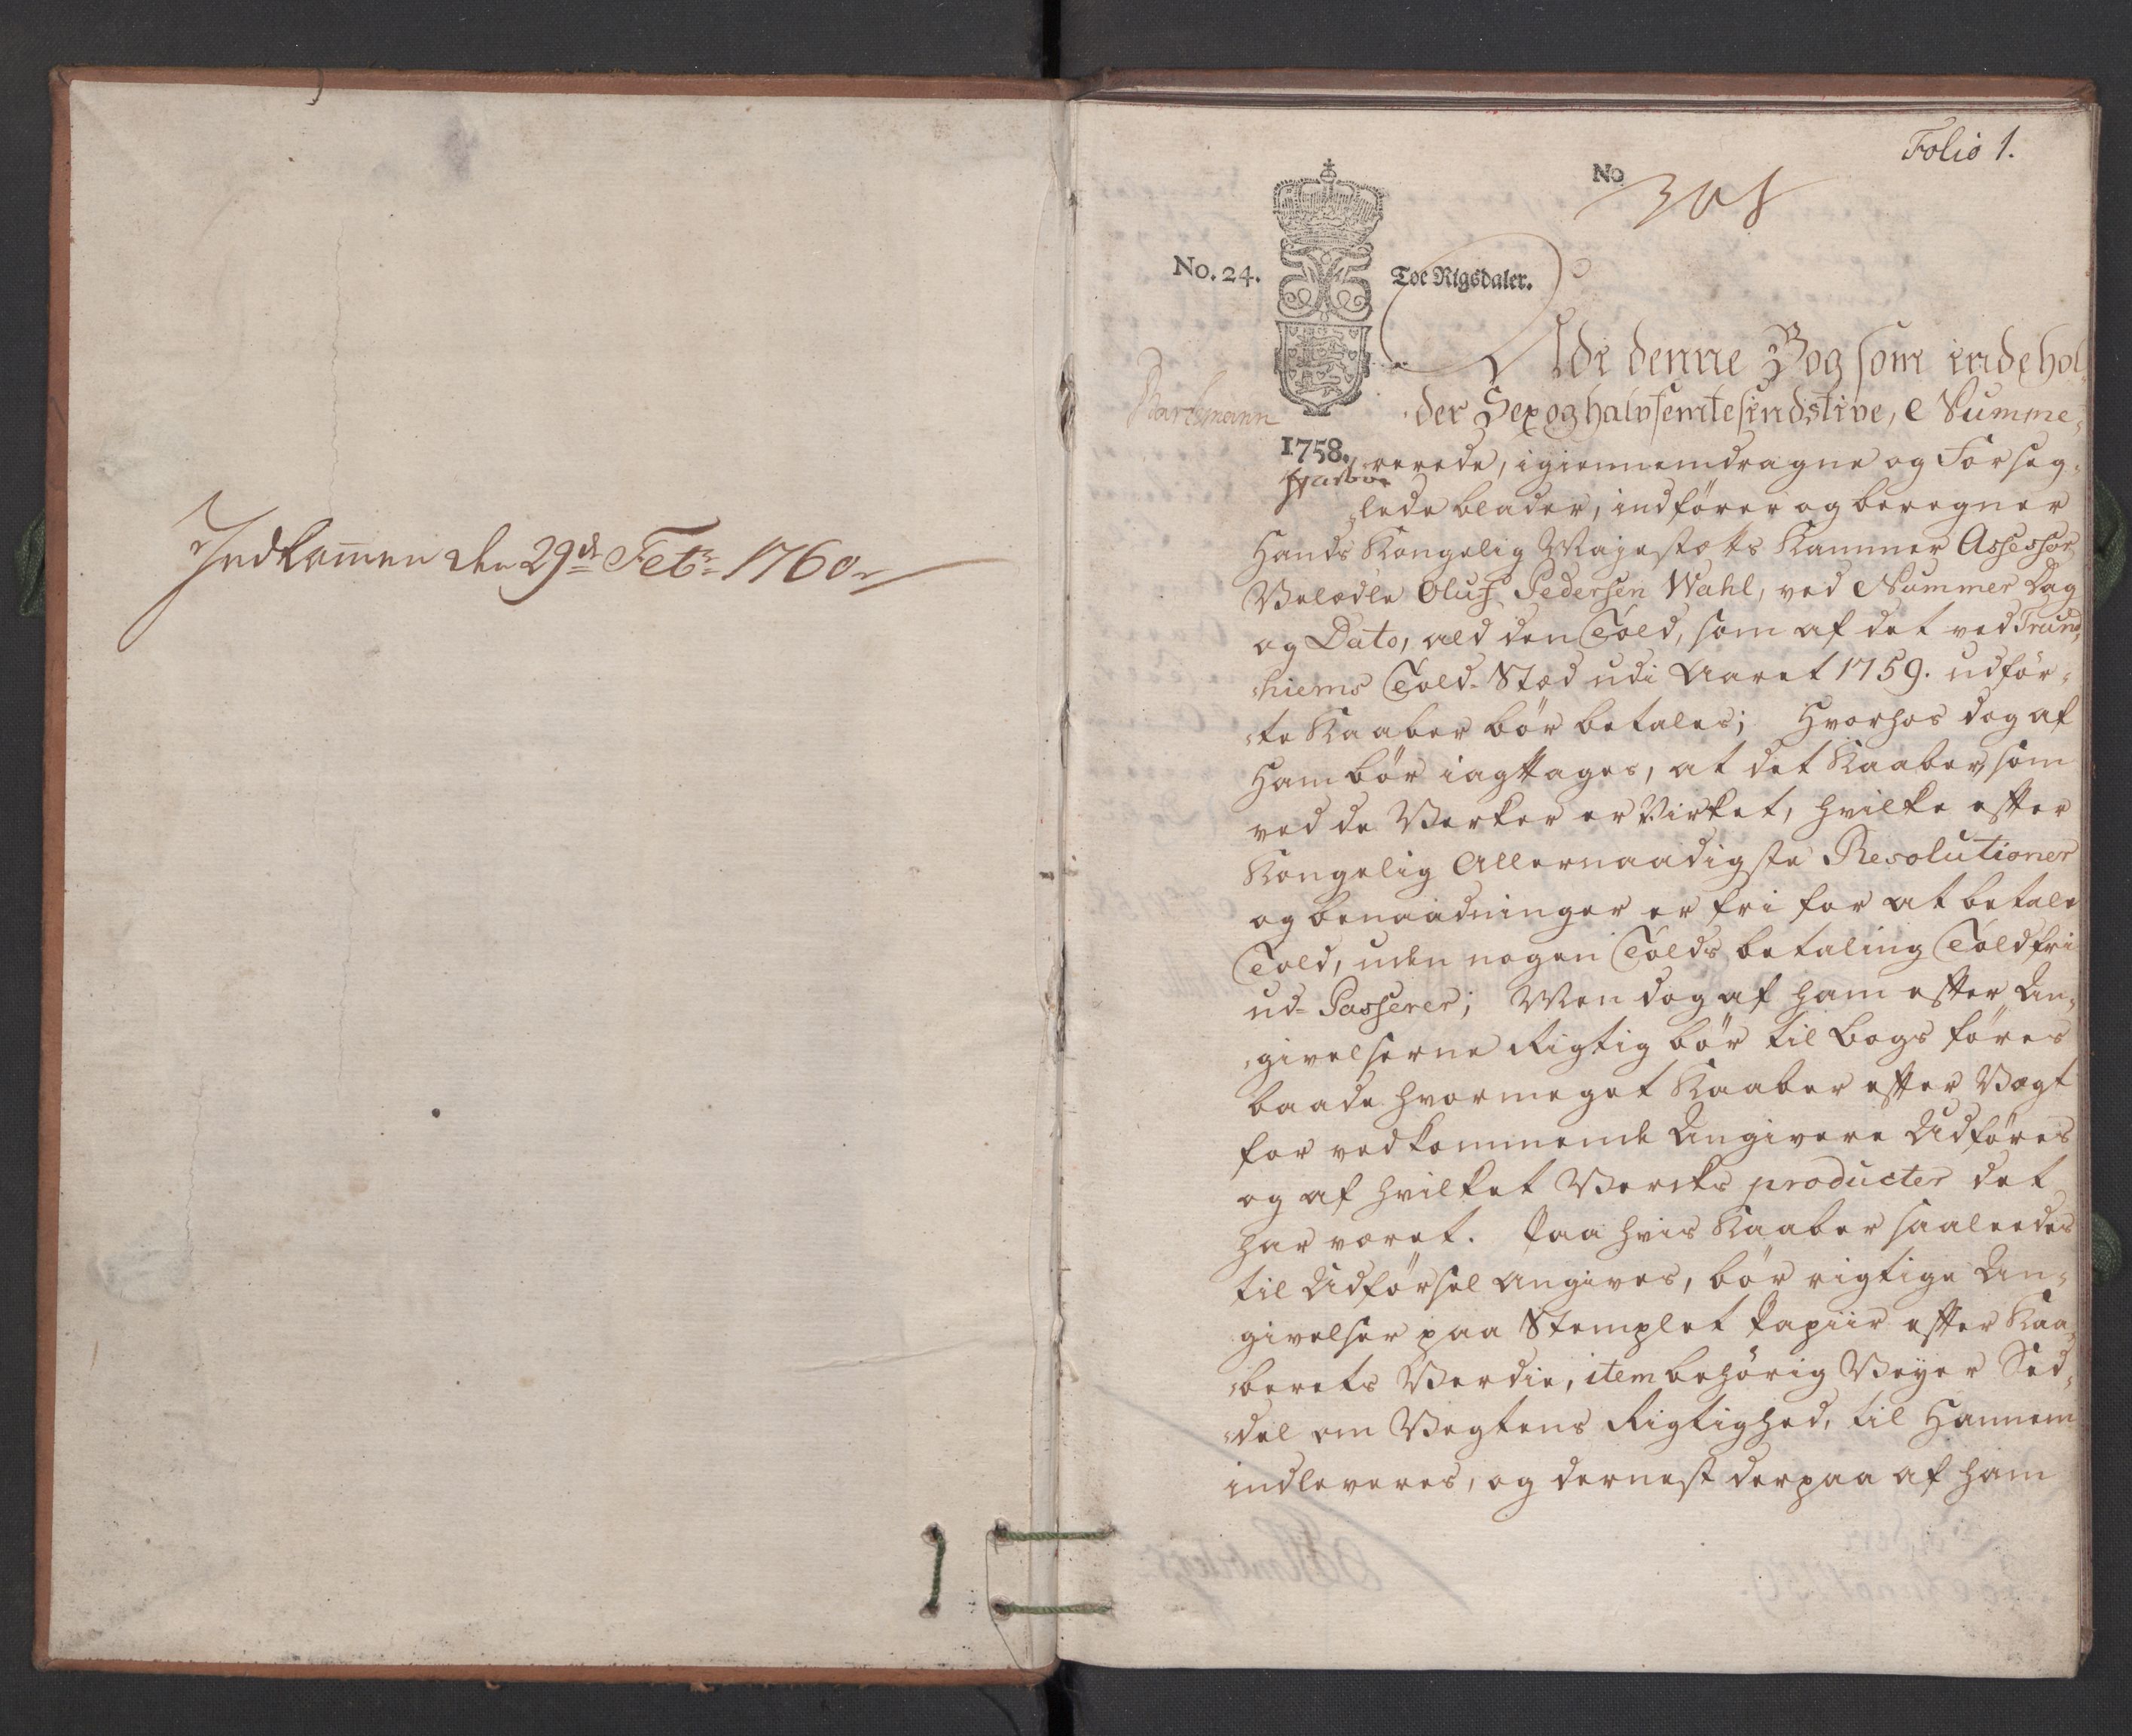 Indkommen den 29de Febr: 1760
Folio 1.
No
308
No. 24.
Toe Rigsdaler.
1758.
Udi denne Bog som indehol-
der Sex og halvfemtesindstive, Numme-
rerede, igiennemdragne og Forseg-
lede blader, indfører og beregner
Hands Kongelig Mayestæts Kammer Assessor
Velædle Oluf Pedersen Wahl, ved Nummer Dag
og Dato, ald den Told, som af det ved Trund-
hiems Told-Stæd udi Aaret 1759. udför-
te Kaaber bör betales; Hvorhos dog af
Ham bör iagttages, at det Kaaber, som
ved de Verker er Virket, hvilke efter
Kongelig Allernaadigste Resolutioner
og benaadninger er fri for at betale
Told, uden nogen Tolds betaling Toldfri
ud-Passerer; Men dog af ham efter An-
givelserne Rigtig bör til bogs föres
baade hvormeget Kaaber efter Vægt
for vedkommende Angivere Udföres
og af hvilket Vercks producter det
har været. Paa hvis Kaaber saaleedes
til Udförsel angives, bör rigtige An-
givelser paa Stemplet Papiir efter Kaa-
berets Værdie, item behörig Veyer Sed-
del om Vegtens Rigtighed, til Hannem
indleveres, og dernest derpaa af ham